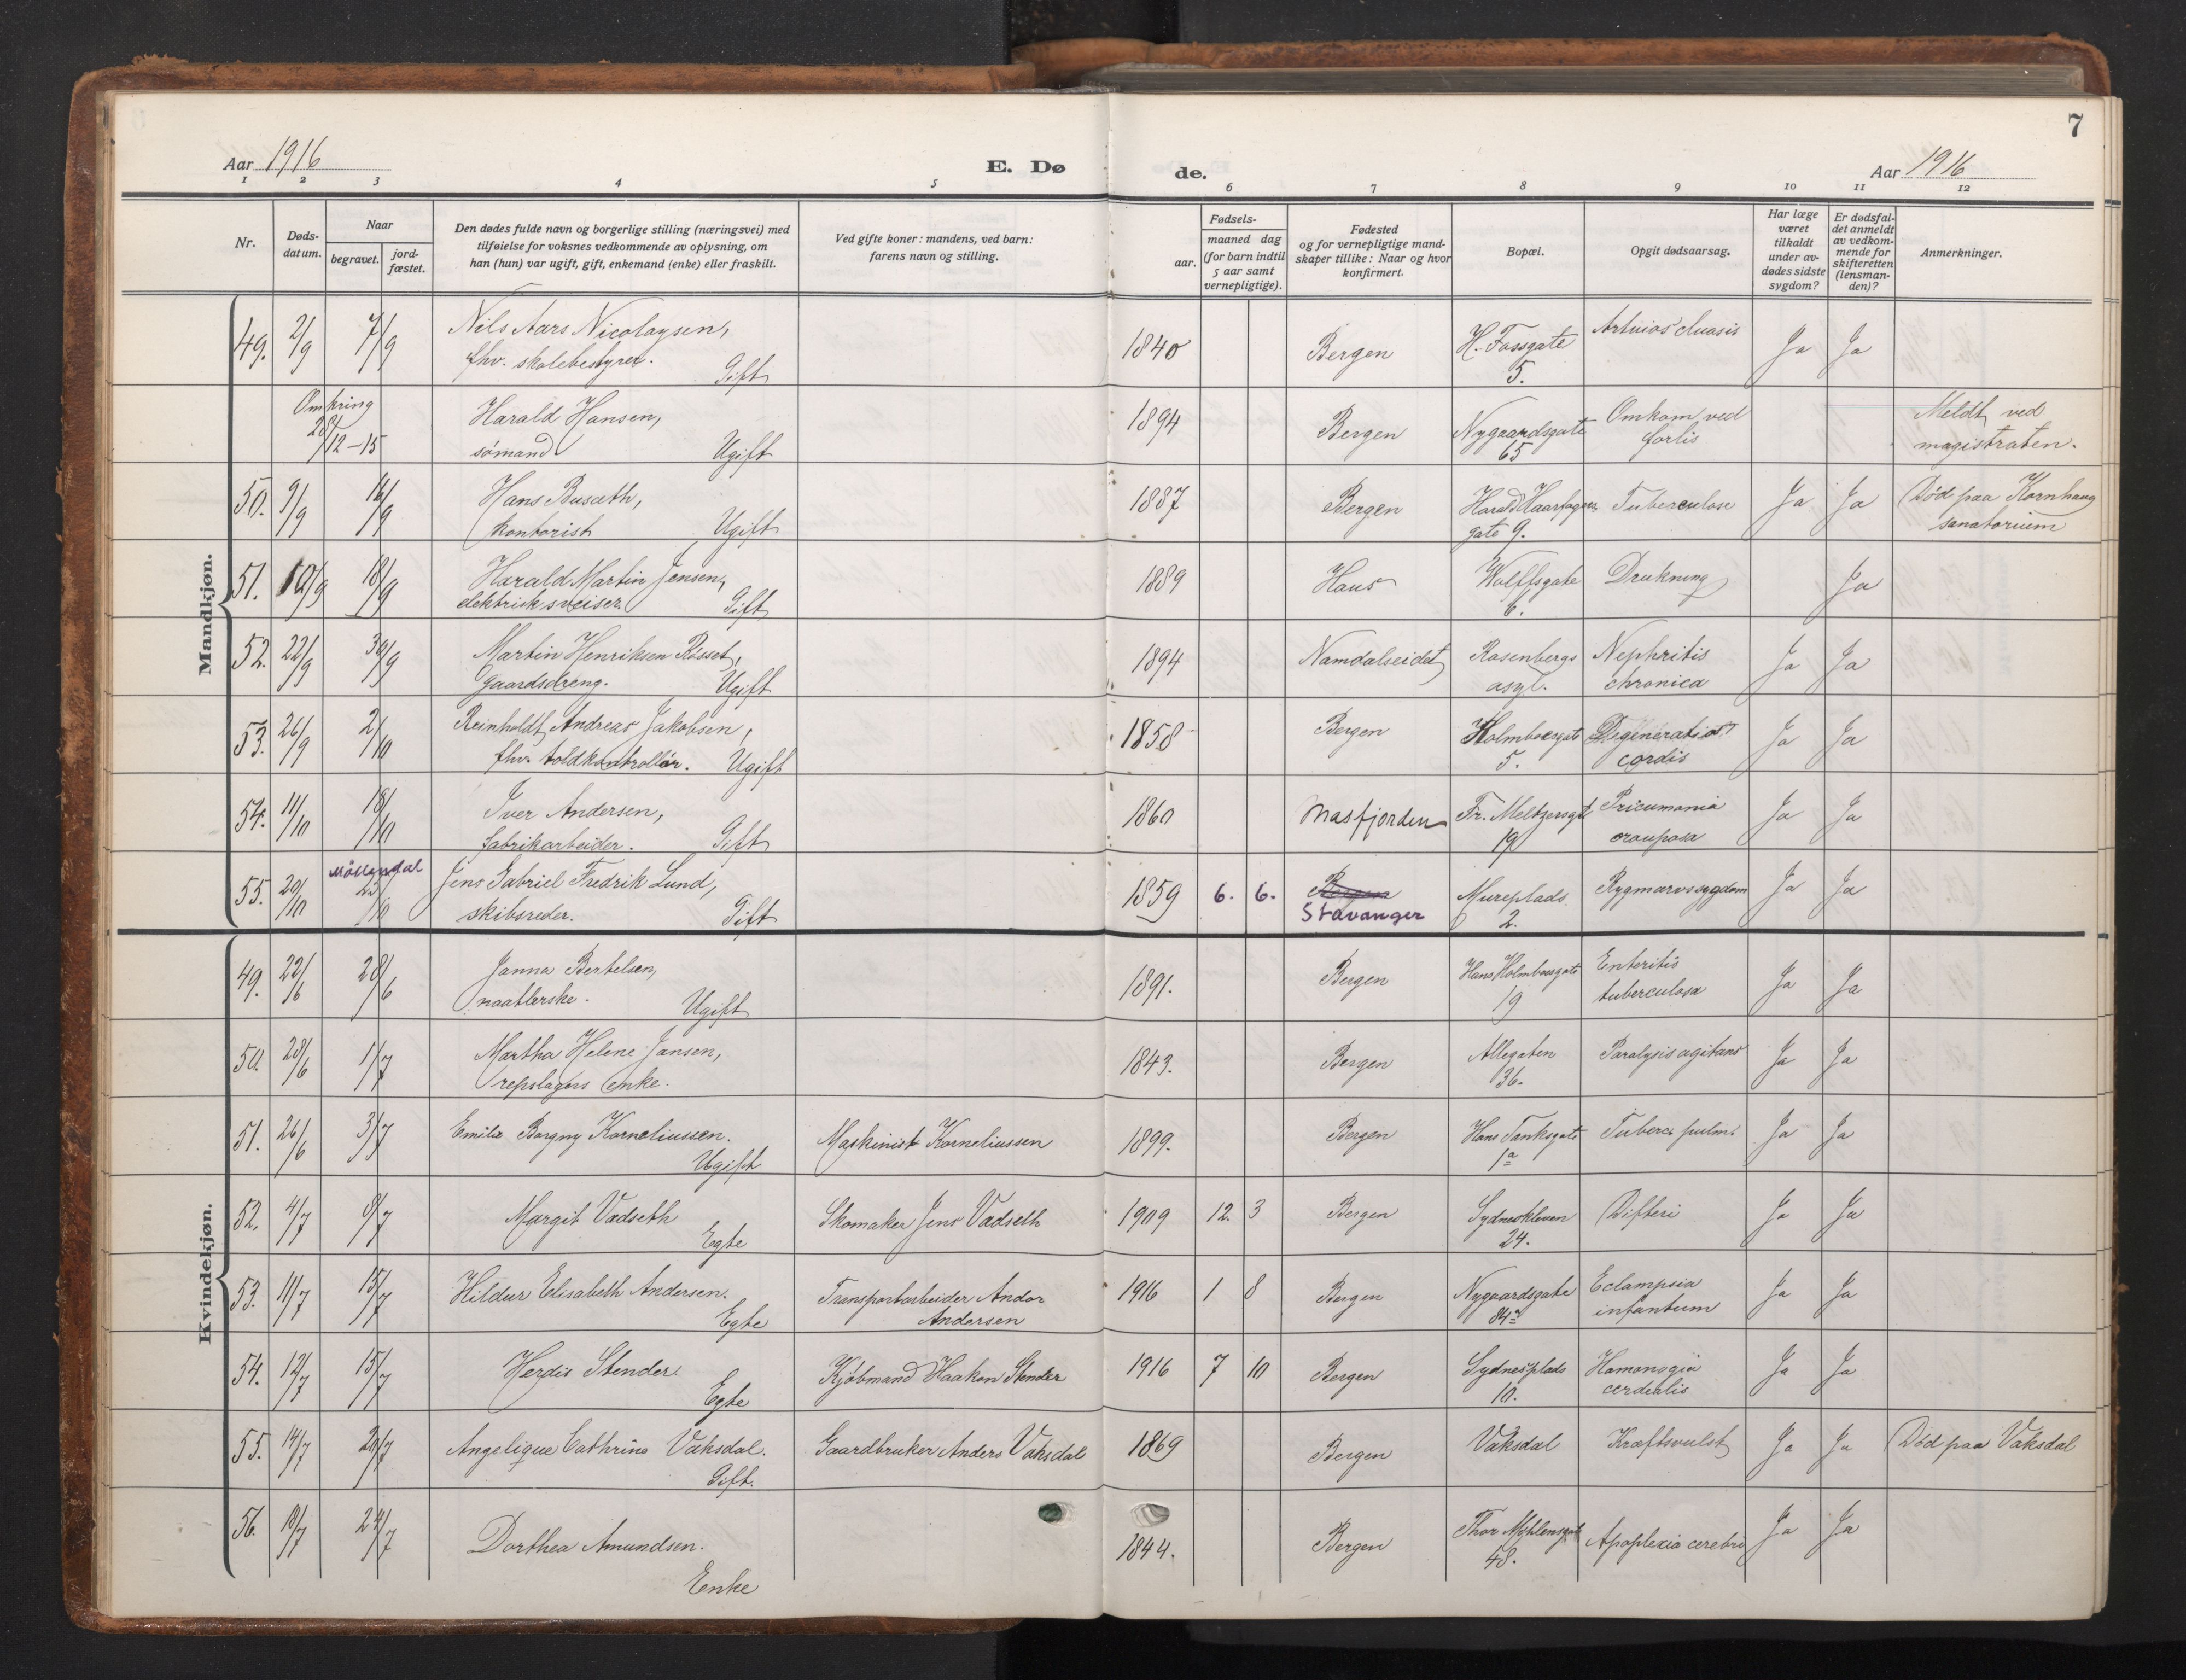 7
Aar 1916
E. Dø
de.
Aar 1916
1 2 3 4 5 6 7 8 9 10 11 12
Nr.
Døds-
datum.
Naar
begravet.
jord-
fæstet.
Den dødes fulde navn og borgerlige stilling (næringsvei) med
tilføielse for voksnes vedkommende av oplysning, om
han (hun) var ugift, gift, enkemand (enke) eller fraskilt.
Ved gifte koner: mandens, ved barn:
farens navn og stilling.
Fødsels-
aar.
maaned dag
(for barn indtil
5 aar samt
vernepligtige).
Fødested
og for vernepligtige mand-
skaper tillike: Naar og hvor
konfirmert.
Bopæl.
Opgit dødsaarsag.
Har læge
været
tilkaldt
under av-
dødes sidste
sygdom?
Er dødsfal-
det anmeldt
av vedkom-
mende for
skifteretten
(lensman-
den)?
Anmerkninger.
Mandkjøn.
49. 2/9 7/9 Nils Aars Nicolaysen, 1840 Bergen H. Fossgate Ja Ja
fhv. skolebestyrer. Gift 5.
Omkring Harald Hansen, 1894 Bergen Nygaardsgate Omkom ved Meldt ved
28/12-15 sømand Ugift 65 forlis magistraten.
50. 9/9 16/9 Hans Busæth, 1887 Bergen Harald Haarfagres Tuberculose Ja Ja Død paa Kornhaug
kontorist Ugift gate 9. sanatorium
51. 10/9 18/9 Harald Martin Jensen, 1889 Haus Wolffsgate Drukning Ja
elektrisk sveiser. Gift 6.
52. 22/9 30/9 Martin Henriksen Røsset, 1894 Namdalseidet Rosenbergs Nephritis Ja Ja
gaardsdreng. Ugift asyl. chronica
53. 26/9 2/10 Reinholdt Andreas Jakobsen, 1858 Bergen Holmboesgate Degeneratio Ja Ja
fhv. toldkontrollør. Ugift 5. cordis
54. 11/10 18/10 Iver Andersen, 1860 Masfjorden Fr. Meltzersgt Pneumonia Ja Ja
fabrikarbeider. Gift 19 crouposa
Møllendal
55. 20/10 25/10 Jens Gabriel Fredrik Lund, 1859 6. 6. Bergen Mureplads Rygmarvssygdom Ja Ja
skibsreder. Gift Stavanger 2.
Kvindekjøn.
49. 22/6 28/6 Janna Bertelsen, 1891. Bergen Hans Holmboesgate Enteritis Ja Ja
naatlerske. Ugift 19 tuberculosa
50. 28/6 1/7 Martha Helene Jansen, 1843. Bergen Allegaten Paralysis agitans Ja Ja
repslagers enke. 36.
51. 26/6 3/7 Emilie Borgny Korneliussen. Maskinist Korneliussen 1899. Bergen Hans Tanksgate Tuberc. pulm. Ja Ja
Ugift 1a
52. 4/7 8/7 Margit Vadseth Skomaker Jens Vadseth 1909 12. 3 Bergen Sydneskleven Difteri Ja Ja
Egte 24.
53. 11/7 15/7 Hildur Elisabeth Andersen. Transportarbeider Andor 1916 1 8 Bergen Nygaardsgate Eclampsia Ja Ja
Egte Andersen 84a infantum
54. 12/7 15/7 Herdis Stender. Kjøbmand Haakon Stender 1916 7 10 Bergen Sydnesplads Ja Ja
Egte 10.
55. 14/7 20/7 Angelique Cathrine Vaksdal. Gaardbruker Anders Vaksdal 1869 Bergen Vaksdal Kræftsvulst Ja Ja Død paa Vaksdal
Gift.
56. 18/7 24/7 Dorthea Amundsen. 1844. Bergen Thor Møhlensgate Apoplexia cerebri Ja Ja
Enke 48.